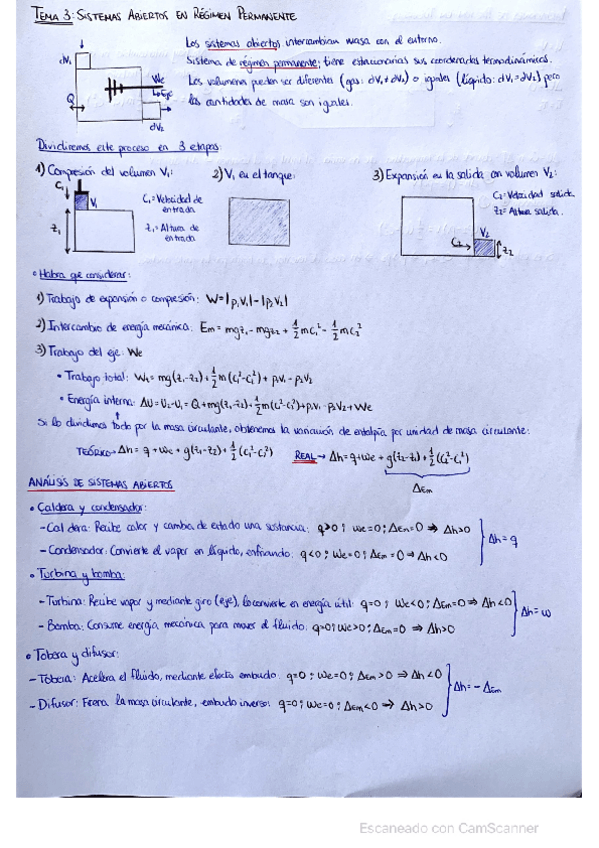 TEMA 3: SISTEMAS ABIERTOS EN RÉGIMEN PERMANENTE
Los sistemas abiertos intercambian masa con el entorno.
Sistema de régimen permanente: tiene estacionarias sus coordenadas termodinámicas.
Los volúmenes pueden ser diferentes (gas: dV₁≠dV₂) o iguales (líquido: dV₁=dV₂) pero
las cantidades de masa son iguales.
dV₁
Q
We
Eje
dV₂
Dividiremos este proceso en 3 etapas:
1) Compresión del volumen V₁:
2) V₁ en el tanque:
3) Expansión en la salida con volumen V₂:
C₁
V₁
z₁
C₁=Velocidad de entrada
z₁=Altura de entrada
C₂=Velocidad salida.
z₂=Altura salida.
C₂
V₂
z₂
Habrá que considerar:
1) Trabajo de expansión o compresión: W=|p₁V₁|-|p₂V₂|
2) Intercambio de energía mecánica: Em=mgz₁-mgz₂+½mc₁²-½mc₂²
3) Trabajo del eje: We
• Trabajo total: Wt=mg(z₁-z₂)+½m(c₁²-c₂²)+p₁V₁-p₂V₂
• Energía interna: ΔU=U₂-U₁=Q+mg(z₁-z₂)+½m(c₁²-c₂²)+p₁V₁-p₂V₂+We
Si lo dividimos todo por la masa circulante, obtenemos la variación de entalpía por unidad de masa circulante:
TEÓRICO→Δh=q+we+g(z₁-z₂)+½(c₁²-c₂²) REAL→Δh=q+we+g(z₂-z₁)+½(c₂²-c₁²)
ΔEm
ANÁLISIS DE SISTEMAS ABIERTOS
• Caldera y condensador:
- Caldera: Recibe calor y cambia de estado una sustancia: q>0; we=0; ΔEm=0 ⇒ Δh>0
- Condensador: Convierte el vapor en líquido, enfriando: q<0; we=0; ΔEm=0 ⇒ Δh<0
Δh=q
• Turbina y bomba:
- Turbina: Recibe vapor y mediante giro (eje), lo convierte en energía útil: q=0; we<0; ΔEm=0 ⇒ Δh<0
- Bomba: Consume energía mecánica para mover el fluido: q=0; we>0; ΔEm=0 ⇒ Δh>0
Δh=w
• Tobera y difusor:
- Tobera: Acelera el fluido, mediante efecto embudo: q=0; we=0; ΔEm>0 ⇒ Δh<0
- Difusor: Frena la masa circulante, embudo inverso: q=0; we=0; ΔEm<0 → Δh>0
Δh=-ΔEm
Escaneado con CamScanner